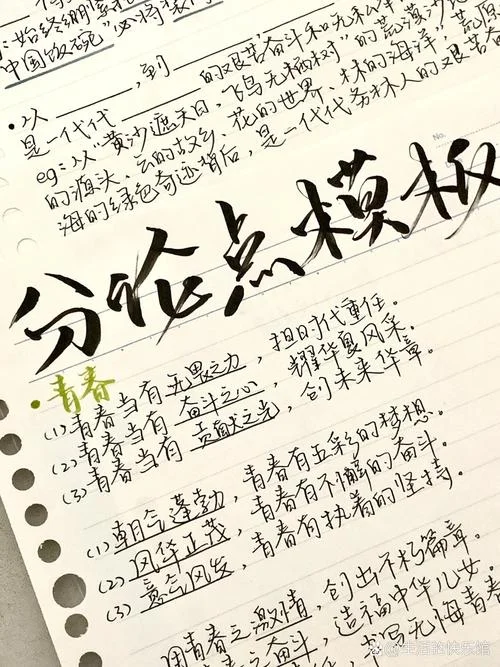 始终绷紧
中国饭碗”必将
·以________,到________的艰苦奋斗和无私
是一代代
eg:以“黄沙遮天日,飞鸟无栖树”的荒漠沙地
的源头、云的故乡、花的世界、林的海洋”荒原
海的绿色奇迹背后,是一代代务林人的艰苦奋
No.
分论点模板
·青春
(1)青春当有无畏之力,担时代重任。
(2)青春当有奋斗之心,耀华夏风采。
(3)青春当有贡献之光,创未来华章。
(1)朝气蓬勃,青春有五彩的梦想。
(2)风华正茂,青春有不懈的奋斗。
(3)意气风发,青春有执着的坚持。
用青春之激情,创出不朽篇章。
之奋斗,造福中华儿女。
书写无悔青春
生活的快乐馆